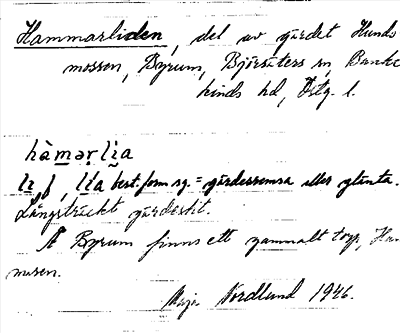 Hammarliden, del av gärdet Hunds
mossen, Byrum, Björsäters sn Banke
kinds hd, Östg. l.
hàmərlìa
li f, lia best. form sg. = gärdesremsa eller glänta.
Långsträckt gärdesbit.
Å Byrum finns ett gammalt torp, Ha
maren.
Maja Nordlund 1946.